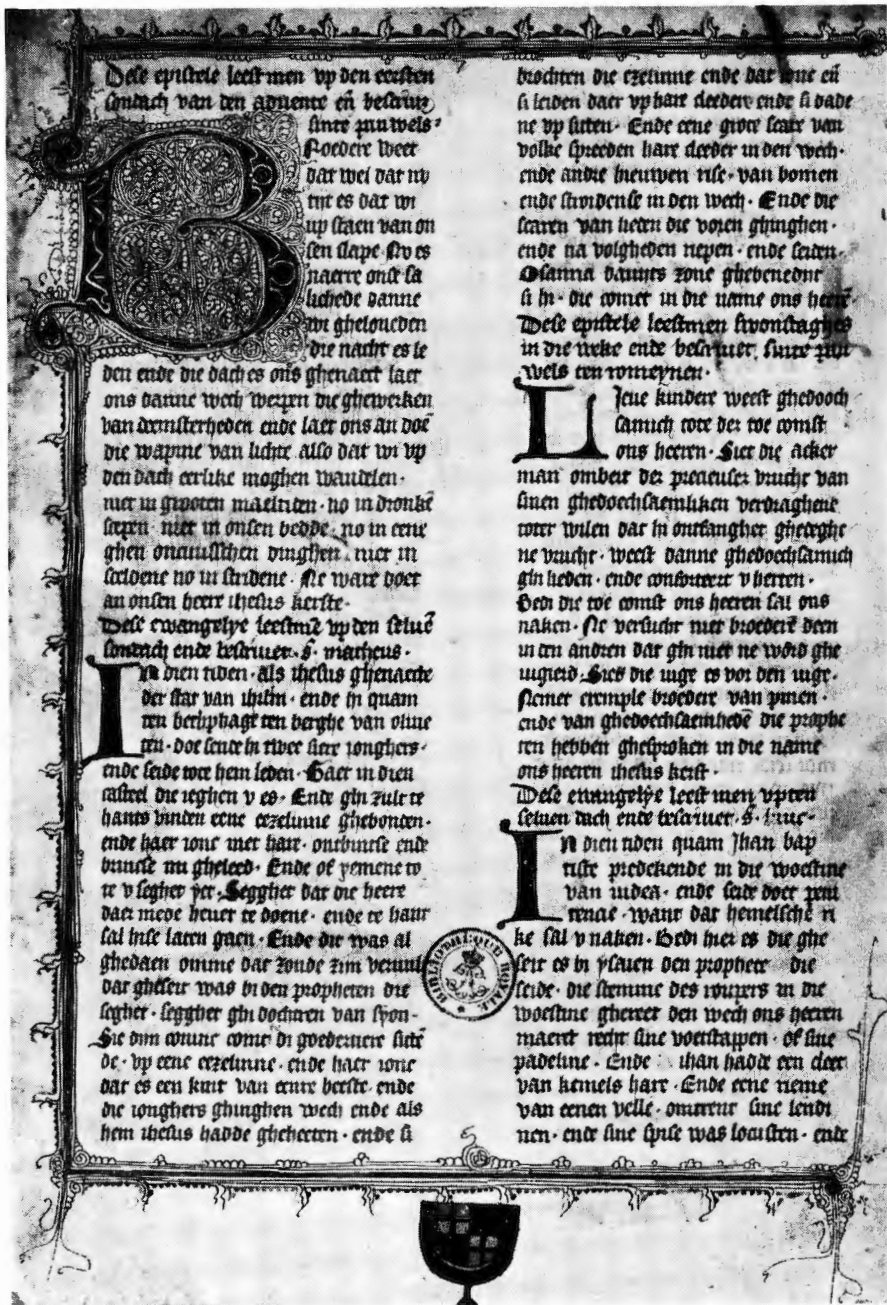 Dese epistele leestmen vp den eersten
sondach van den aduente en̄ bescriuet
sinte pauwels·
BRoedere weet
dat wel dat nv
tijt es dat wi
up staen van on
sen slape· Nv es
naerre onse sa
lichede danne
wi gheloueden
die nacht es le
den ende die dach es ons ghenaect laet
ons danne wech werpen die ghewerken
van deemsterheden ende laet ons an doē
die wapine van lichte also dat wi vp
den dach eerlike moghen wandelen·
niet in grooten maeltiden· no in dronkē
scepen· niet in onsen bedde· no in eene
ghen onkuisschen dinghen· niet in
sceldene no in stridene· Ne ware doet
an onsen heere ihesus kerste·
Dese ewangelye leestmē vp den seluē
sondach ende bescriuet· s̄· matheus·
IN dien tiden· als ihesus ghenaecte
der stat van ihrlm̄· ende hi quam
ten bethphage ten berghe van oliue
ten· doe sende hi twee sire ionghers·
ende seide tote hem leden· Gaet in dien
casteel die ieghen v es· Ende ghi zult te
hants vinden eene ezelinne ghebonden·
ende haer ionc met hare· ontbintse ende
brincse mi gheleed· Ende of yemene to
te v seghet yet· Segghet dat die heere
daer mede heuet te doene· ende te hant
sal hise laten gaen· Ende dit was al
ghedaen omme dat zoude zijn veruult
dat gheseit was bi den propheten die
seghet· segghet ghi dochtren van syon·
Sie dijn coninc comt di goedertiere sittē
de· vp eene eezelinne· ende haer ionc
dat es een kint van eenre beeste· ende
die ionghers ghinghen wech ende als
hem ihesus hadde gheheeten· ende si
brochten die ezelinne ende dat ionc en̄
si leiden daer vp hare cleedere ende si dade
ne vp sitten· Ende eene grote scare van
volke spreeden hare cleeder in den wech·
ende andre hieuwen rise· van bomen
ende stroidense in den wech· Ende die
scaren van lieden die voren ghinghen·
ende na volgheden riepen· ende seiden·
Osanna dauids zone ghebenedijt
si hi· die comet in die name ons heerē
Dese epistele leestmen swonsdaghes
in die weke ende bescriuet sinte pau
wels ten romeynen·
LIeue kindere weest ghedooch
samich tote der toe comst
ons heeren· Siet die acker
man ombeit der precieuser vrucht van
sinen ghedoechsaemliken verdraghene
toter wilen dat hi ontfanghet gheteghe
ne vrucht· weest danne ghedoechsamich
ghi lieden· ende conforteert v herten·
Bedi die toe comst ons heeren sal ons
naken· Ne versucht niet broederē deen
in den andren dat ghi niet ne word ghe
iugierd· Siet die iuge es vor den iuge·
Nemet exemple broedere van pinen·
ende van ghedoechsaemhedē die prophe
ten hebben ghesproken in die name
ons heeren ihesus kerst·
Dese ewangelye leestmen vpten
seluen dach ende bescriuet· s̄· luuc·
IN dien tiden quam Jhan bap
tiste predekende in die woestine
van iudea· ende seide doet peni
tencie· want dat hemelsche ri
ke sal v naken· Bedi hier es die ghe
seit es bi ysaien den prophete die
seide· die stemme des roupers in die
woestine ghereet den wech ons heeren
maect recht sine voetstappen· of sine
padeline· Ende ihan hadde een cleet
van kemels hare· Ende eene rieme
van eenen velle· omtrent sine lendi
nen· ende sine spise was locusten· ende
BIBLIOTHEQUE ROYALE